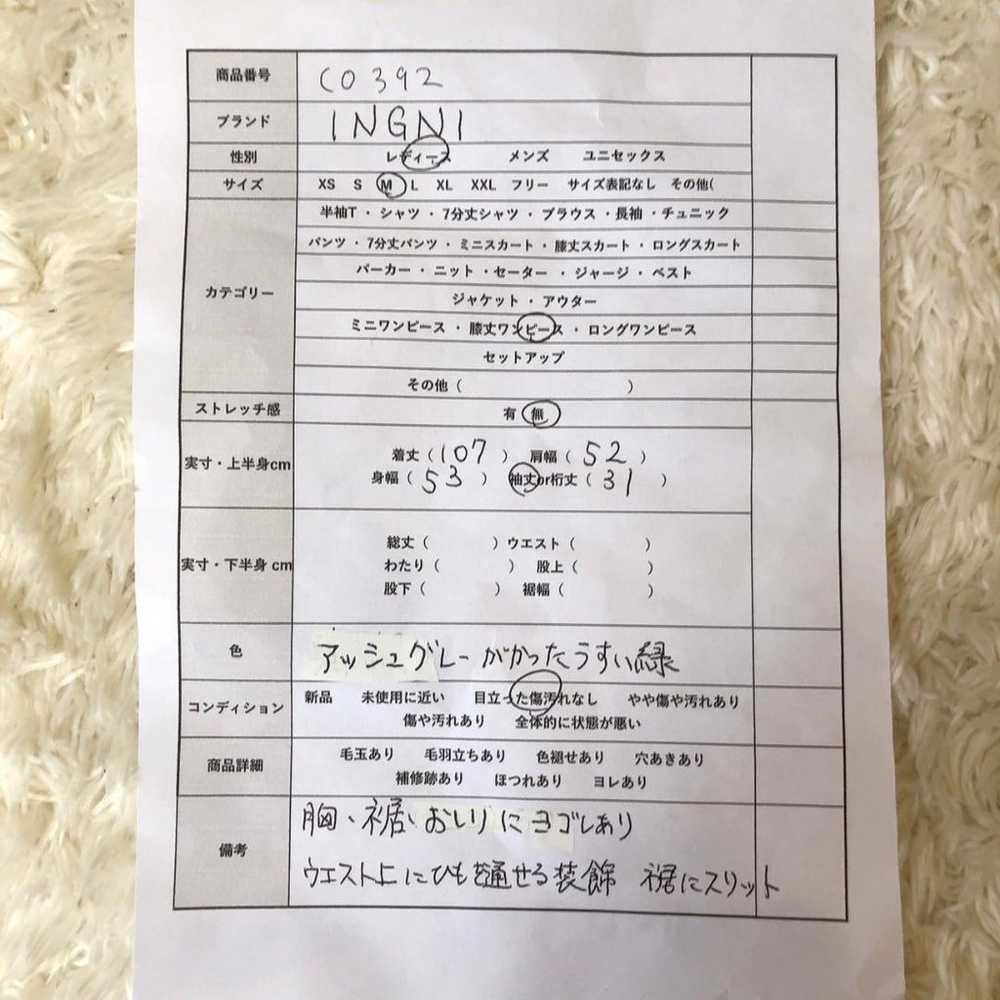 商品番号 C0392
ブランド INGNI
性別 レディース メンズ ユニセックス
サイズ XS S M L XL XXL フリー サイズ表記なし その他(
半袖T・シャツ・7分丈シャツ・ブラウス・長袖・チュニック
パンツ・7分丈パンツ・ミニスカート・膝丈スカート・ロングスカート
パーカー・ニット・セーター・ジャージ・ベスト
カテゴリー
ジャケット・アウター
ミニワンピース・膝丈ワンピース・ロングワンピース
セットアップ
その他( )
ストレッチ感 有 無
着丈(107) 肩幅(52)
実寸・上半身cm
身幅(53) 袖丈or裄丈(31)
総丈( )ウエスト( )
実寸・下半身cm わたり( ) 股上( )
股下( ) 裾幅( )
色 アッシュグレーがかったうすい緑
新品 未使用に近い 目立った傷汚れなし やや傷や汚れあり
コンディション
傷や汚れあり 全体的に状態が悪い
毛玉あり 毛羽立ちあり 色褪せあり 穴あきあり
商品詳細
補修跡あり ほつれあり ヨレあり
胸、裾、おしりにヨゴレあり
備考
ウエスト上にひもを通せる装飾 裾にスリット